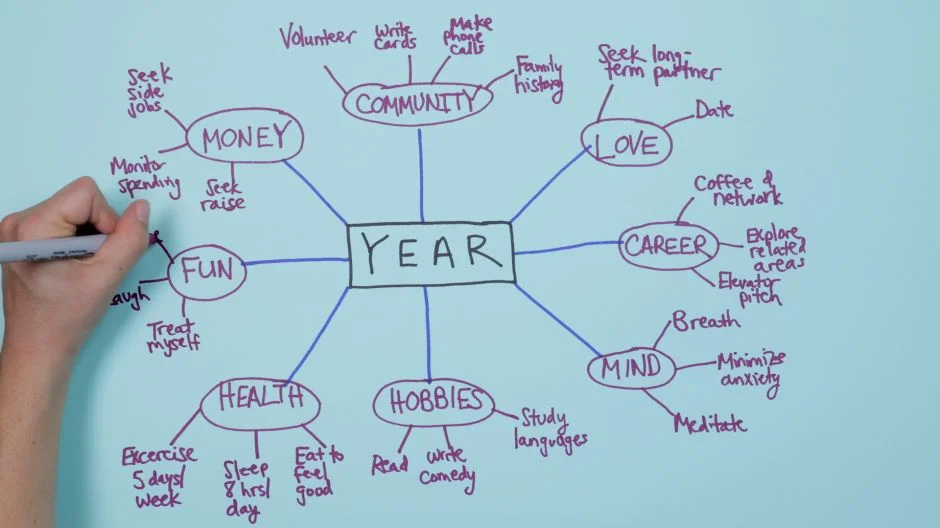 Volunteer
Write
cards
Make
phone
calls
Family
history
COMMUNITY
Seek long-
term partner
Date
LOVE
Seek
side
jobs
MONEY
Monitor
spending
Seek
raise
YEAR
Coffee &
network
CAREER
Explore
related
areas
Elevator
pitch
FUN
Treat
myself
Breath
MIND
Minimize
anxiety
Meditate
HEALTH
Excercise
5 days/
week
Sleep
8 hrs/
day
Eat to
feel
good
HOBBIES
Read
Write
comedy
Study
languages